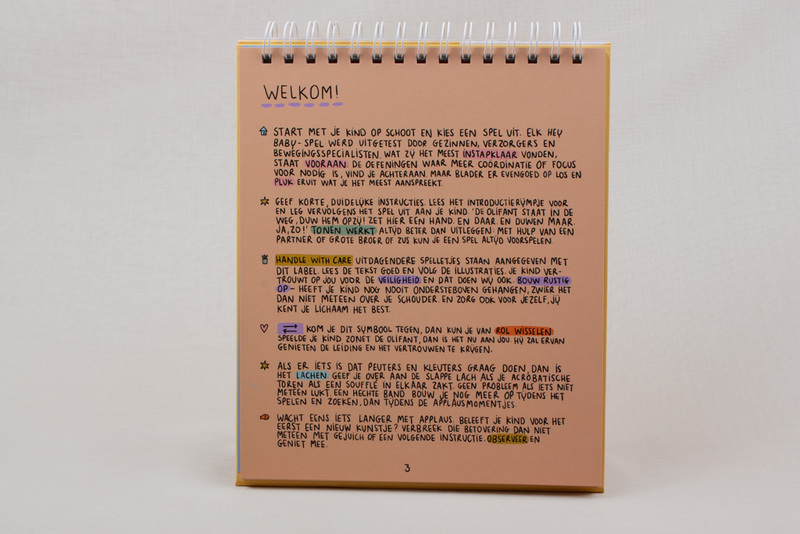 WELKOM!
START MET JE KIND OP SCHOOT EN KIES EEN SPEL UIT. ELK HEY
BABY-SPEL WERD UITGETEST DOOR GEZINNEN, VERZORGERS EN
BEWEGINGSSPECIALISTEN. WAT ZIJ HET MEEST INSTAPKLAAR VONDEN,
STAAT VOORAAN: DE OEFENINGEN WAAR MEER COORDINATIE OF FOCUS
VOOR NODIG IS, VIND JE ACHTERAAN. MAAR BLADER ER EVENGOED OP LOS EN
PLUK ERUIT WAT JE HET MEEST AANSPREEKT.
GEEF KORTE, DUIDELIJKE INSTRUCTIES. LEES HET INTRODUCTIERIJMPJE VOOR
EN LEG VERVOLGENS HET SPEL UIT AAN JE KIND. 'DE OLIFANT STAAT IN DE
WEG, DUW HEM OPZIJ! ZET HIER EEN HAND. EN DAAR. EN DUWEN MAAR.
JA, ZO!' TONEN WERKT ALTIJD BETER DAN UITLEGGEN: MET HULP VAN EEN
PARTNER OF GROTE BROER OF ZUS KUN JE EEN SPEL ALTIJD VOORSPELEN.
HANDLE WITH CARE UITDAGENDERE SPELLETJES STAAN AANGEGEVEN MET
DIT LABEL. LEES DE TEKST GOED EN VOLG DE ILLUSTRATIES. JE KIND VER-
TROUWT OP JOU VOOR DE VEILIGHEID: EN DAT DOEN WIJ OOK. BOUW RUSTIG
OP - HEEFT JE KIND NOG NOOIT ONDERSTEBOVEN GEHANGEN, ZWIER HET
DAN NIET METEEN OVER JE SCHOUDER EN ZORG OOK VOOR JEZELF, JIJ
KENT JE LICHAAM HET BEST.
⇄ KOM JE DIT SYMBOOL TEGEN, DAN KUN JE VAN ROL WISSELEN:
SPEELDE JE KIND ZONET DE OLIFANT, DAN IS HET NU AAN JOU. HIJ ZAL ERVAN
GENIETEN DE LEIDING EN HET VERTROUWEN TE KRIJGEN.
ALS ER IETS IS DAT PEUTERS EN KLEUTERS GRAAG DOEN, DAN IS
HET LACHEN. GEEF JE OVER AAN DE SLAPPE LACH ALS JE ACROBATISCHE
TOREN ALS EEN SOUFFLÉ IN ELKAAR ZAKT. GEEN PROBLEEM ALS IETS NIET
METEEN LUKT. EEN HECHTE BAND BOUW JE NOG MEER OP TIJDENS HET
SPELEN EN ZOEKEN, DAN TIJDENS DE APPLAUSMOMENTJES.
WACHT EENS IETS LANGER MET APPLAUS. BELEEFT JE KIND VOOR HET
EERST EEN NIEUW KUNSTJE? VERBREEK DIE BETOVERING DAN NIET
METEEN MET GEJUICH OF EEN VOLGENDE INSTRUCTIE. OBSERVEER EN
GENIET MEE.
3